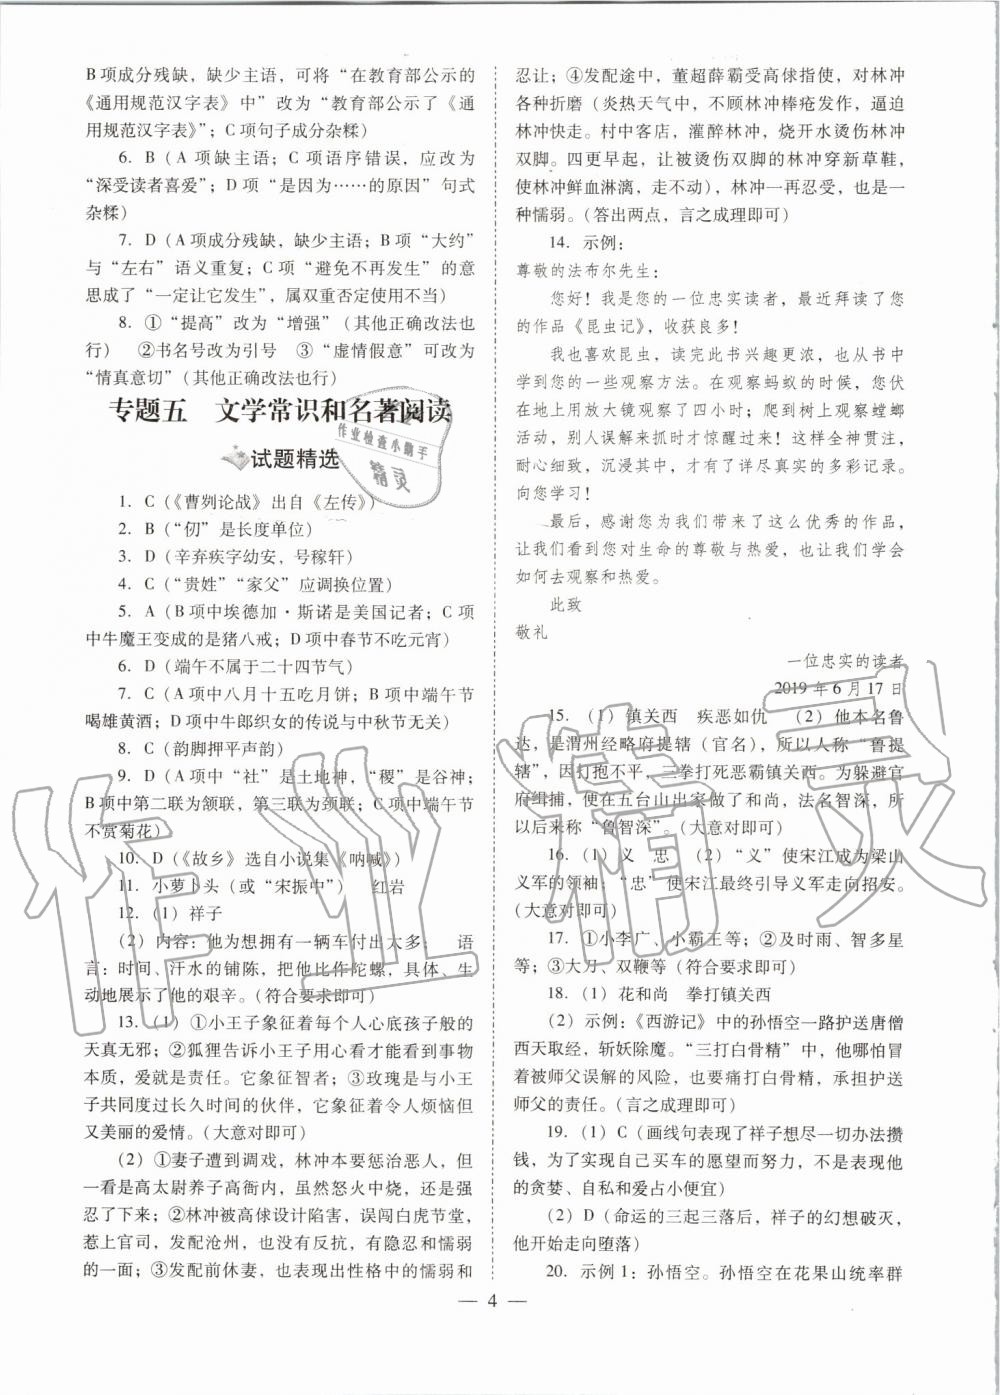 B 项成分残缺，缺少主语，可将“在教育部公示的
《通用规范汉字表》中”改为“教育部公示了《通
用规范汉字表》”；C 项句子成分杂糅）
6. B（A 项缺主语；C 项语序错误，应改为
“深受读者喜爱”；D 项“是因为……的原因”句式
杂糅）
7. D（A 项成分残缺，缺少主语；B 项“大约”
与“左右”语义重复；C 项“避免不再发生”的意
思成了“一定让它发生”，属双重否定使用不当）
8. ①“提高”改为“增强”（其他正确改法也
行） ②书名号改为引号 ③“虚情假意”可改为
“情真意切”（其他正确改法也行）
专题五 文学常识和名著阅读
试题精选
1. C（《曹刿论战》出自《左传》）
2. B（“仞”是长度单位）
3. D（辛弃疾字幼安，号稼轩）
4. C（“贵姓”“家父”应调换位置）
5. A（B 项中埃德加·斯诺是美国记者；C 项
中牛魔王变成的是猪八戒；D 项中春节不吃元宵）
6. D（端午不属于二十四节气）
7. C（A 项中八月十五吃月饼；B 项中端午节
喝雄黄酒；D 项中牛郎织女的传说与中秋节无关）
8. C（韵脚押平声韵）
9. D（A 项中“社”是土地神，“稷”是谷神；
B 项中第二联为颔联，第三联为颈联；C 项中端午节
不赏菊花）
10. D（《故乡》选自小说集《呐喊》）
11. 小萝卜头（或“宋振中”） 红岩
12. （1）祥子
（2）内容：他为想拥有一辆车付出太多； 语
言：时间、汗水的铺陈，把他比作陀螺，具体、生
动地展示了他的艰辛。（符合要求即可）
13. （1）①小王子象征着每个人心底孩子般的
天真无邪；②狐狸告诉小王子用心看才能看到事物
本质，爱就是责任。它象征智者；③玫瑰是与小王
子共同度过长久时间的伙伴，它象征着令人烦恼但
又美丽的爱情。（大意对即可）
（2）①妻子遭到调戏，林冲本要惩治恶人，但
一看是高太尉养子高衙内，虽然怒火中烧，还是强
忍了下来；②林冲被高俅设计陷害，误闯白虎节堂，
惹上官司，发配沧州，也没有反抗，有隐忍和懦弱
的一面；③发配前休妻，也表现出性格中的懦弱和
忍让；④发配途中，董超薛霸受高俅指使，对林冲
各种折磨（炎热天气中，不顾林冲棒疮发作，逼迫
林冲快走。村中客店，灌醉林冲，烧开水烫伤林冲
双脚。四更早起，让被烫伤双脚的林冲穿新草鞋，
使林冲鲜血淋漓，走不动），林冲一再忍受，也是一
种懦弱。（答出两点，言之成理即可）
14. 示例：
尊敬的法布尔先生：
您好！我是您的一位忠实读者，最近拜读了您
的作品《昆虫记》，收获良多！
我也喜欢昆虫，读完此书兴趣更浓，也从书中
学到您的一些观察方法。在观察蚂蚁的时候，您伏
在地上用放大镜观察了四小时；爬到树上观察螳螂
活动，别人误解来抓时才惊醒过来！这样全神贯注，
耐心细致，沉浸其中，才有了详尽真实的多彩记录。
向您学习！
最后，感谢您为我们带来了这么优秀的作品，
让我们看到您对生命的尊敬与热爱，也让我们学会
如何去观察和热爱。
此致
敬礼
一位忠实的读者
2019 年 6 月 17 日
15. （1）镇关西 疾恶如仇 （2）他本名鲁
达，是渭州经略府提辖（官名），所以人称“鲁提
辖”，因打抱不平，三拳打死恶霸镇关西。为躲避官
府缉捕，便在五台山出家做了和尚，法名智深，所
以后来称“鲁智深”。（大意对即可）
16. （1）义 忠 （2）“义”使宋江成为梁山
义军的领袖；“忠”使宋江最终引导义军走向招安。
（大意对即可）
17. ①小李广、小霸王等；②及时雨、智多星
等；③大刀、双鞭等（符合要求即可）
18. （1）花和尚 拳打镇关西
（2）示例：《西游记》中的孙悟空一路护送唐僧
西天取经，斩妖除魔。“三打白骨精”中，他哪怕冒
着被师父误解的风险，也要痛打白骨精，承担护送
师父的责任。（言之成理即可）
19. （1）C（画线句表现了祥子想尽一切办法攒
钱，为了实现自己买车的愿望而努力，不是表现他
的贪婪、自私和爱占小便宜）
（2）D（命运的三起三落后，祥子的幻想破灭，
他开始走向堕落）
20. 示例 1：孙悟空。孙悟空在花果山统率群
— 4 —
作业检查小帮手
精灵
作业精灵